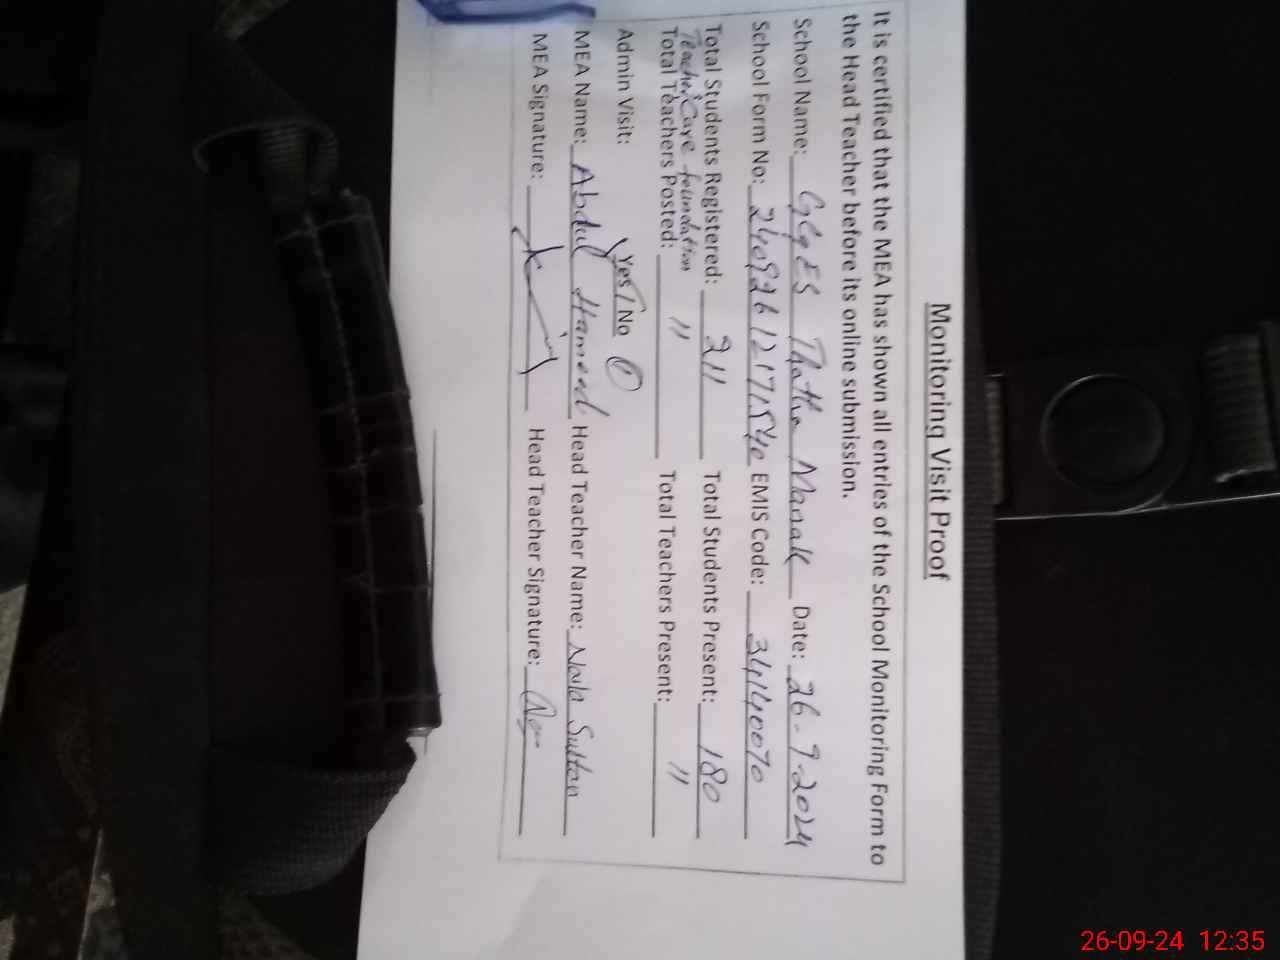 Monitoring Visit Proof
It is certified that the MEA has shown all entries of the School Monitoring Form to
the Head Teacher before its online submission.
School Name: GGES Thatha Manak Date: 26-9-2024
School Form No: EMIS Code: 34140070
Total Students Registered: 211 Total Students Present: 180
Teacher Care foundation
Total Teachers Posted: 11 Total Teachers Present: 11
Admin Visit: Yes / No
MEA Name: Abdul Hameed Head Teacher Name: Naila Sultan
MEA Signature: Head Teacher Signature:
26-09-24 12:35